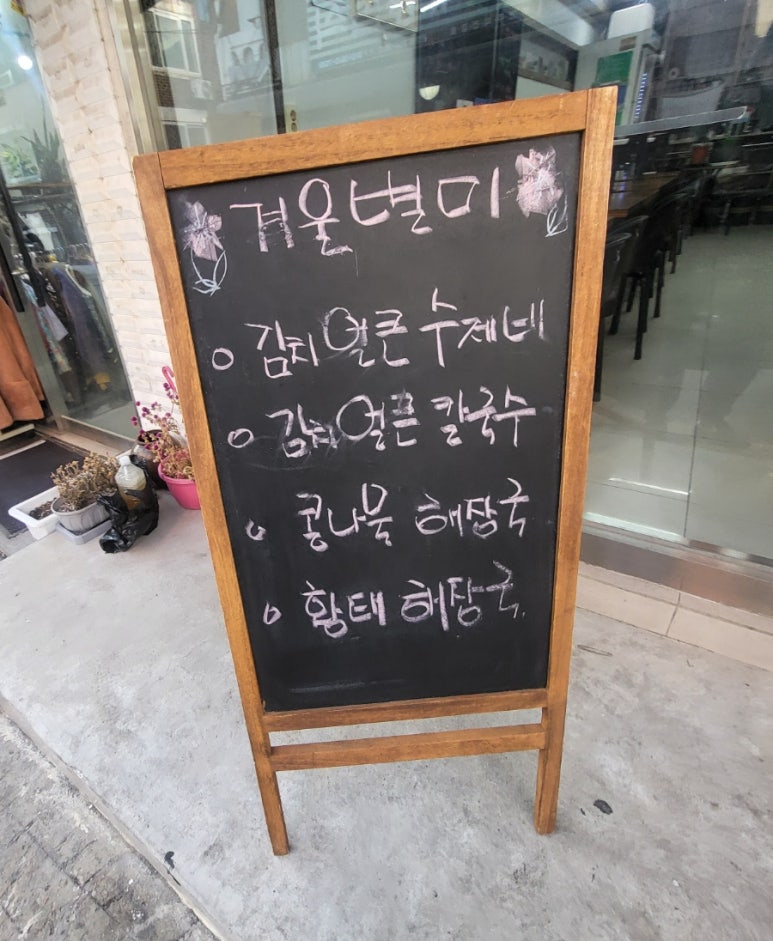 겨울별미
o 김치얼큰 수제비
o 김치얼큰 칼국수
o 콩나물 해장국
o 황태 해장국